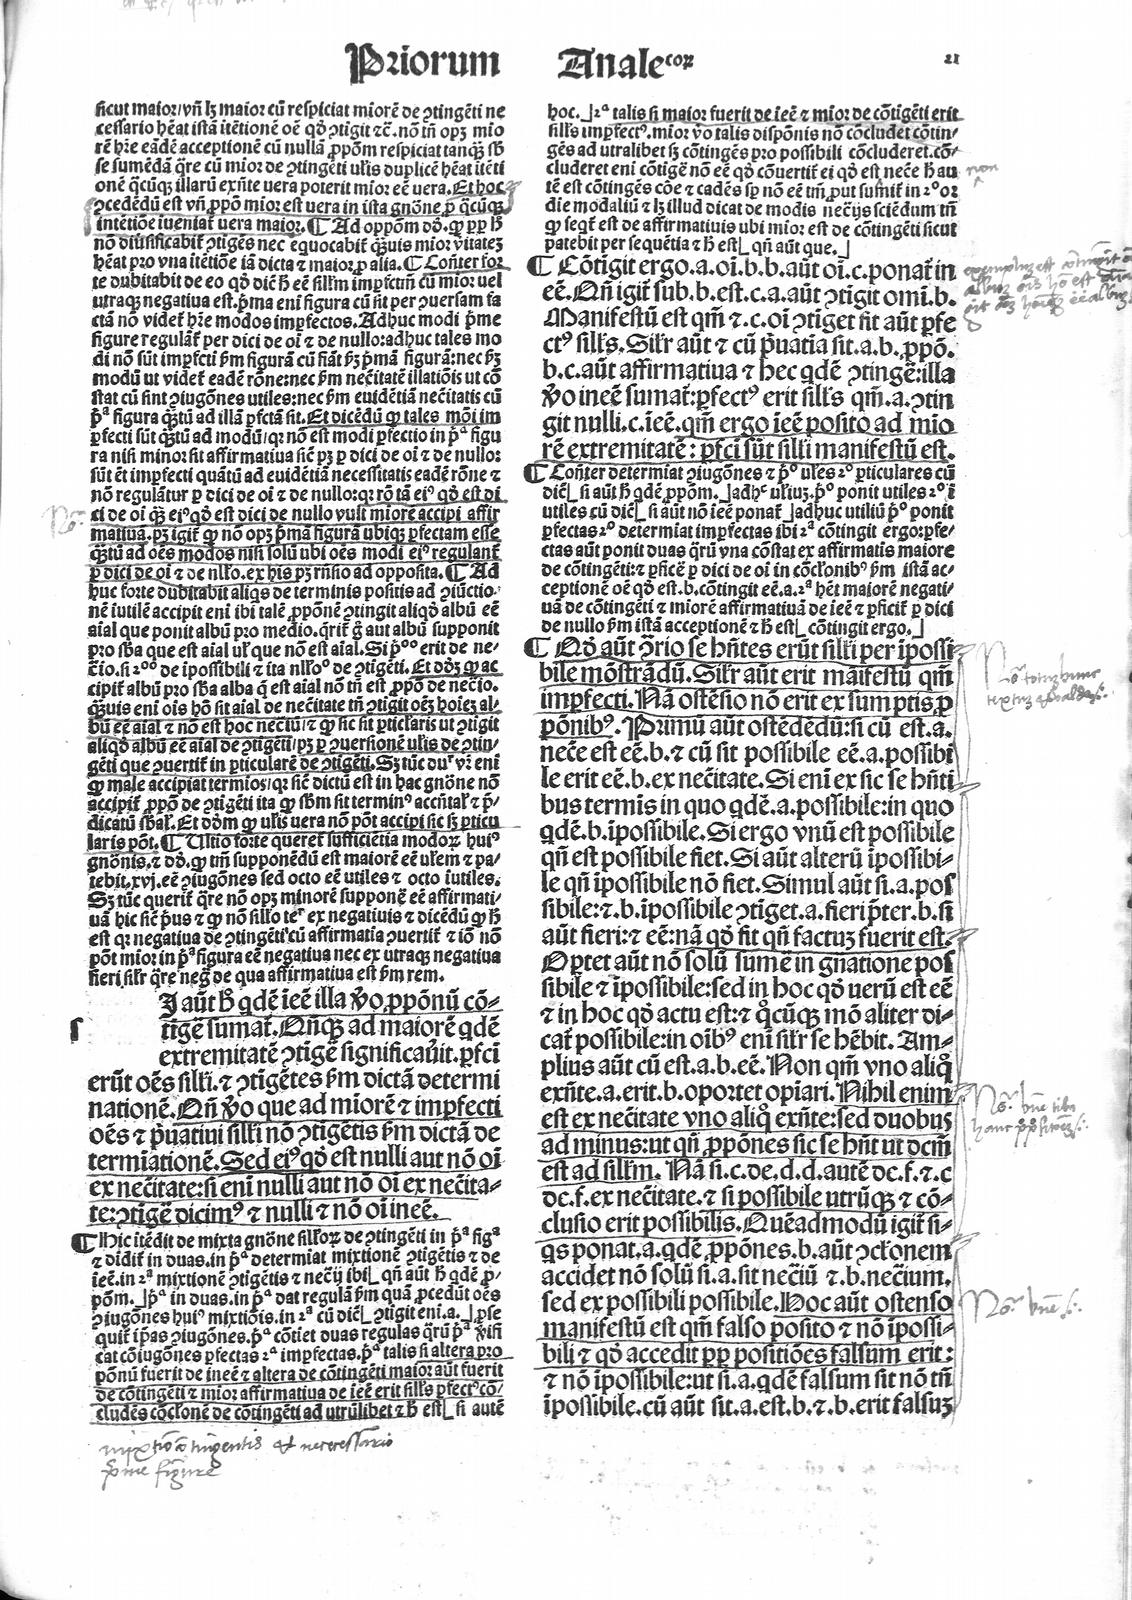 Priorum Analecoꝝ 21
ficut maior/vñ lꝫ maior cū respiciat miorē de ↄtingēti ne
cessario hēat istā itētionē oē qḋ ↄtigit ⁊c̄. nō tñ opꝫ mio
rē hr̄e eādē acceptionē cū nulla ꝓpōm respiciat tanꝙ̄ sb̄
se sumēdā q̄re cū mior de ↄtingēti ul̄is duplicē hēat itēti
onē q̄cūqꝫ illarū exn̄te uera poterit mior eē uera. Et hoc
ↄcedēdū est vñ ꝓpō mior est uera in ista gnōne ꝑ q̄cūqꝫ
intētiōē iueniat̄ uera maior. ¶ Ad oppōm dō. ꝙ ꝓp h̄
nō diūsificabit̄ ↄtigēs nec equocabit̄ q̄uis mior vitateꝫ
hēat pro vna itētiōe iā dicta ⁊ maior ꝓ alia. ¶ Cōn̄ter for
te dubitabit de eo qḋ dic̄ h̄ eē sill̄m imꝑfectū cū mior uel
utraqꝫ negatiua est. p̄ma eni figura cū sit per ↄuersam fa
ctā nō videt̄ hr̄e modos imꝑfectos. Adhuc modi p̄me
figure regulāt̄ per dici de oī ⁊ de nullo: adhuc tales mo
di nō sūt imꝑfcti p̄m figurā cū fiāt p̄ꝫ p̄mā figurā: nec p̄ꝫ
modū ut videt̄ eadē rōne: nec p̄m nec̄itatē illatiōis ut cō
stat cū sint ↄiugōnes utiles: nec p̄m euidētiā nec̄itatis cū
pᵃ figura q̄tū ad illā ꝑfctā sit. Et dicēdū ꝙ tales mōi im
ꝑfecti sūt q̄tū ad modū/ qꝛ nō est modi ꝑfectio in pᵃ figu
ra nisi minor sit affirmatiua sic̄ pꝫ ꝑ dici de oī ⁊ de nullo:
sūt et imꝑfecti quātū ad euidētiā necessitatis eadē rōne ⁊
nō regulātur ꝑ dici de oī ⁊ de nullo: qꝛ rō tā ei⁹ qḋ est di
ci de oī q̄ꝫ ei⁹ qḋ est dici de nullo vult miorē accipi affir
matiuā. pꝫ igit̄ ꝙ nō opꝫ p̄mā figurā ubiqꝫ ꝑfectam esse
q̄tū ad oēs modos nisi solū ubi oēs modi ei⁹ regulant̄
ꝑ dici de oī ⁊ de nll̄o. ex his pꝫ rn̄sio ad opposita. ¶ Ad
huc forte dubitabit aliqs de terminis positis ad ↄiūctio⸗
nē iutilē accipit eni ibi talē ꝓpōnē ↄtingit aliqḋ albū eē
aīal que ponit albū pro medio. q̄rit̄ ḡ aut albū supponit
pro sb̄a que est aīal ul̄ que nō est aīal. Si pº erit de ne⸗
c̄io. si 2º de ipossibili ⁊ ita nll̄oº de ↄtigēti. Et dōꝫ ꝙ ac
cipit̄ albū pro sb̄a alba q̄ est aīal nō tñ est ꝓpō de nec̄io.
q̄uis eni oīs hō sit aīal de necitate tñ ↄtigit oēꝫ hoīeꝫ al⸗
bū eē aīal ⁊ nō est hoc nec̄iū/ ⁊ ꝙ sic sit ꝑticlaris ut ↄtigit
aliqḋ albū eē aīal de ↄtigēti/ pꝫ ꝑ ↄuersionē ul̄is de ↄtin⸗
gēti que ↄuertit̄ in ꝑticularē de ↄtigēti.
ꝙ male accipiat termios/ qꝛ sic̄ dictū est in hac gnōne nō
accipit̄ ꝓpō de ↄtigēti ita ꝙ sb̄m sit termin⁹ accn̄tal̄ ⁊ p̄⸗
dicatū sb̄al̄. Et dōm ꝙ ul̄is uera nō pōt accipi sic sꝫ ꝑticu
laris pōt. ¶ Ultio forte queret sufficiētia modoꝝ hui⁹
gnōnis. ⁊ dō. ꝙ tm̄ supponēdū est maiorē eē ul̄em ⁊ pa⸗
tebit. xvi. eē ↄiugōnes sed octo eē utiles ⁊ octo iutiles.
Sꝫ tūc querit̄ q̄re nō opꝫ minorē supponē eē affirmati⸗
uā hic sic̄ p̄us ⁊ ꝙ nō sill̄o teʳ ex negatiuis ⁊ dicēdū ꝙ h̄
est qꝛ negatiua de ↄtingēti cū affirmatia ↄuertit̄ ⁊ iō nō
pōt mior in pᵃ figura eē negatiua nec ex utraqꝫ negatiua
fieri sil̄r q̄re neg̃ de qua affirmatiua est p̄m rem.
I aūt h̄ qdē ieē illa v̄o ꝓpōnū cō⸗
tigē sumat̄. Qn̄qꝫ ad maiorē qdē
extremitatē ↄtigē significau̅it. ꝑfci
erūt oēs sill̄i. ⁊ ↄtigētes p̄m dictā determi
nationē. Qn̄ v̄o que ad miorē ⁊ imꝑfecti
oēs ⁊ p̄uatiui sill̄i nō ↄtigētis p̄m dictā de
termiationē. Sed ei⁹ qḋ est nulli aut nō oī
ex nec̄itate: si eni nulli aut nō oī ex nec̄ita⸗
te: ↄtigē dicim⁹ ⁊ nulli ⁊ nō oī ineē.
¶ Hic itēdit de mixta gnōne sill̄oꝝ de ↄtingēti in pᵃ figᵃ
⁊ didit̄ in duas. in pᵃ determiat mixtionē ↄtigētis ⁊ de
ieē. in 2ᵃ mixtionē ↄtigētis ⁊ nec̄ij ibi⌊ qn̄ aūt h̄ qdē ꝓ⸗
pōm.⌋ pᵃ in duas. in pᵃ dat regulā p̄m quā ꝓcedūt oēs
ↄiugōnes hui⁹ mixtiōis. in 2ᵃ cū dic̄⌊ ↄtigit eni. a.⌋ ꝓse
quit̄ ip̄as ↄiugōnes. pᵃ cōtiet duas regulas q̄rū pᵃ v̄ifi
cat cōiugōnes ꝑfectas 2ᵃ imꝑfectas. pᵃ talis si altera pro
pōnū fuerit de ineē ⁊ altera de cōtingēti maior aūt fuerit
de cōtingēti ⁊ mior affirmatiua de ieē erit sill̄s ꝑfect⁹ cō⸗
cludēs cōcl̄onē de cōtingēti ad utrūlibet ⁊ h̄ est⌊ si autē
mixtio cōtingentis et necessario
p̄me figure
hoc.⌋ 2ᵃ talis si maior fuerit de ieē ⁊ mior de cōtigēti erit
sill̄s imꝑfect⁹. mior v̄o talis dispōnis nō cōcludet cōtin⸗
gēs ad utralibet sꝫ cōtingēs pro possibili cōcluderet. cō⸗
cluderet eni cōtigē nō eē qḋ cōuertit̄ ei qḋ est nec̄e h̄ au
tē est cōtingēs cōe ⁊ cadēs sꝑ nō eē tm̄ ꝓut sumit̄ in 2º or
die modaliū ⁊ lꝫ illud dicat de modis nec̄ijs sciēdum tñ
ꝙ seqt̄ est de affirmatiuis ubi mior est de cōtingēti sicut
patebit per sequētia ⁊ h̄ est⌊ qn̄ aūt que.⌋
non
¶ Cōtigit ergo. a. oī. b. b. aūt oī. c. ponat̄ in
eē. Qn̄ igit̄ sub. b. est. c. a. aūt ↄtigit omī. b.
Manifestū est qm̄ ⁊. c. oī ↄtiget fit aūt ꝑfe
ct⁹ sill̄s. Sil̄r aūt ⁊ cū p̄uatia sit. a. b. ꝓpō.
b. c. aūt affirmatiua ⁊ hec qdē ↄtingē: illa
v̄o ineē sumat̄: ꝑfect⁹ erit sill̄s qm̄. a. ↄtin
git nulli. c. ieē. qm̄ ergo ieē posito ad mio
rē extremitatē: ꝑfci sūt sill̄i manifestū est.
¶ Cōn̄ter determiat ↄiugōnes ⁊ pº ul̄es 2º ꝑticulares cū
dic̄⌊ si aūt h̄ qdē ꝓpōm.⌋ adhᶜ ul̄iuꝫ. pº ponit utiles 2º i
utiles cū dic̄⌊ si aūt nō ieē ponat̄⌋ adhuc utiliū pº ponit
ꝑfectas 2º determiat imꝑfectas ibi 2ᵃ cōtingit ergo: ꝑfe⸗
ctas aūt ponit duas q̄rū vna cōstat ex affirmatis maiore
de cōtingēti: ⁊ ꝑficē ꝑ dici de oī in cōcl̄onib⁹ p̄m istā ac⸗
ceptionē oē qḋ est. b. cōtingit eē. a. 2ᵃ hēt maiorē negati⸗
uā de cōtingēti ⁊ miorē affirmatiuā de ieē ⁊ ꝑficit̄ ꝑ dici
de nullo p̄m istā acceptionē ⁊ h̄ est⌊ cōtingit ergo.⌋
¶ Qḋ aūt ↄ̄rio se hn̄tes erūt sill̄i per ipossi
bile mōstrādū. Sil̄r aūt erit māifestū qm̄
imꝑfecti. Nā ostēsio nō erit ex sumptis ꝓ
pōnib⁹. Primū aūt ostēdēdū: si cū est. a.
nec̄e est eē. b. ⁊ cū sit possibile eē. a. possibi
le erit eē. b. ex nec̄itate. Si eni ex sic se hn̄ti
bus termis in quo qdē. a. possibile: in quo
qdē. b. ipossibile. Si ergo vnū est possibile
qn̄ est possibile fiet. Si aūt alterū ipossibi⸗
le qn̄ ipossibile nō fiet. Simul aūt si. a. pos
sibile: ⁊. b. ipossibile ↄtiget. a. fieri p̄ter. b. si
aūt fieri: ⁊ eē: nā qḋ fit qn̄ factuꝫ fuerit est.
Optet aūt nō solū sumē in gnatione pos
sibile ⁊ ipossibile: sed in hoc qḋ uerū est eē
⁊ in hoc qḋ actu est: ⁊ q̊cūqꝫ mō aliter di⸗
cat̄ possibile: in oīb⁹ eni sil̄r se hēbit. Am⸗
plius aūt cū est. a. b. eē. Non qm̄ vno aliq̊
exn̄te. a. erit. b. oportet opiari. Nihil enim
est ex nec̄itate vno aliq̊ exn̄te: sed duobus
ad minus: ut qn̄ ꝓpōnes sic se hn̄t ut dcm̄
est ad sill̄m. Nā si. c. de. d. d. autē de. f. ⁊. c
de. f. ex nec̄itate. ⁊ si possibile utrūqꝫ ⁊ cō⸗
clusio erit possibilis. Quēadmodū igit̄ si⸗
qs ponat. a. qdē ꝓpōnes. b. aūt ↄcl̄onem
accidet nō solū si. a. sit nec̄iū ⁊. b. nec̄ium.
sed ex possibili possibile. Hoc aūt ostenso
manifestū est qm̄ falso posito ⁊ nō ipossi⸗
bili ⁊ qḋ accedit ꝓp positiōes falsum erit:
⁊ nō ipossibile: ut si. a. qdē falsum sit nō tñ
ipossibile. cū aūt sit. a. est. b. ⁊. b. erit falsuꝫ